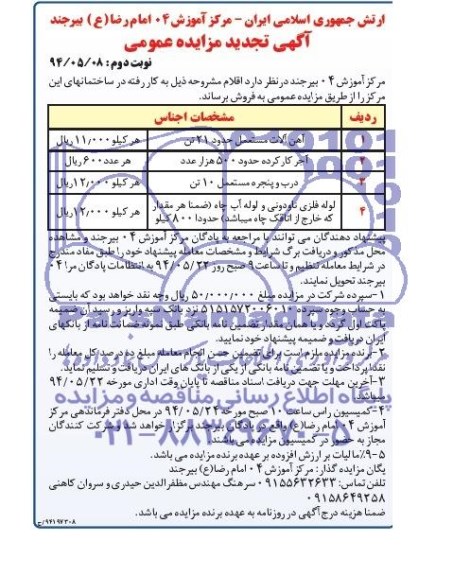 ارتش جمهوری اسلامی ایران - مرکز آموزش ۰۴ امام رضا (ع) بیرجند
آگهی تجدید مزایده عمومی
نوبت دوم: ۹۴/۰۵/۰۸
مرکز آموزش ۰۴ بیرجند در نظر دارد اقلام مشروحه ذیل به کار رفته در ساختمانهای این
مرکز را از طریق مزایده عمومی به فروش برساند.
ردیف مشخصات اجناس
۱ آهن آلات مستعمل حدود ۲۱ تن هر کیلو ۱۱/۰۰۰ ریال
۲ آجر کار کرده حدود ۵۰۰ هزار عدد هر عدد ۶۰۰ ریال
۳ درب و پنجره مستعمل ۱۰ تن هر کیلو ۱۲/۰۰۰ ریال
۴ لوله فلزی ناودونی و لوله آب چاه (ضمنا هر مقدار
که خارج از اتاقک چاه میباشد) حدودا ۸۰۰ کیلو هر کیلو ۱۲/۰۰۰ ریال
پیشنهاد دهندگان می توانند با مراجعه به پادگان مرکز آموزش ۰۴ بیرجند و مشاهده
محل مذکور و دریافت برگ شرایط و مشخصات معامله پیشنهاد خود را طبق مفاد مندرج
در شرایط معامله تنظیم و تا ساعت ۹ صبح روز ۹۴/۰۵/۲۴ به انتظامات پادگان مرا ۰۴
بیرجند تحویل نمایند.
۱-سپرده شرکت در مزایده مبلغ ۵۰/۰۰۰/۰۰۰ ریال وجه نقد خواهد بود که بایستی
به حساب وجوه سپرده ۵۱۵۱۵۷۲۰۰۶۰۱۰ نزد بانک سپه واریز و رسید آن ضمیمه
پاکت اول گردد و یا همان مقدار تضمین نامه بانکی طبق نمونه ضمانت نامه از بانکهای
ایران دریافت و ضمیمه پیشنهاد خود نمایید.
۲-برنده مزایده ملزم است برای تضمین حسن انجام معامله مبلغ ده درصد کل معامله را
نقدا پرداخت و یا تضمین نامه بانکی از یکی از بانک های ایران دریافت و تسلیم نماید.
۳-آخرین مهلت جهت دریافت اسناد مناقصه تا پایان وقت اداری مورخه ۹۴/۰۵/۲۲
میباشد.
۴-کمیسیون راس ساعت ۱۰ صبح مورخه ۹۴/۰۵/۲۴ در محل دفتر فرماندهی مرکز
آموزش ۰۴ امام رضا(ع) واقع در پادگان بیرجند برگزار خواهد شد و شرکت کنندگان
مجاز به حضور در کمیسیون مزایده می باشند.
۵-۹٪ مالیات بر ارزش افزوده بر عهده برنده مزایده می باشد.
یگان مزایده گذار: مرکز آموزش ۰۴ امام رضا(ع) بیرجند
تلفن تماس: ۰۹۱۵۵۶۳۲۶۳۳ سرهنگ مهندس مظفرالدین حیدری و سروان کاهنی
۰۹۱۵۸۶۴۹۲۵۸
ضمنا هزینه درج آگهی در روزنامه به عهده برنده مزایده می باشد.
۹۴۱۹۷۳۰۸/ج
پایگاه اطلاع رسانی مناقصه و مزایده